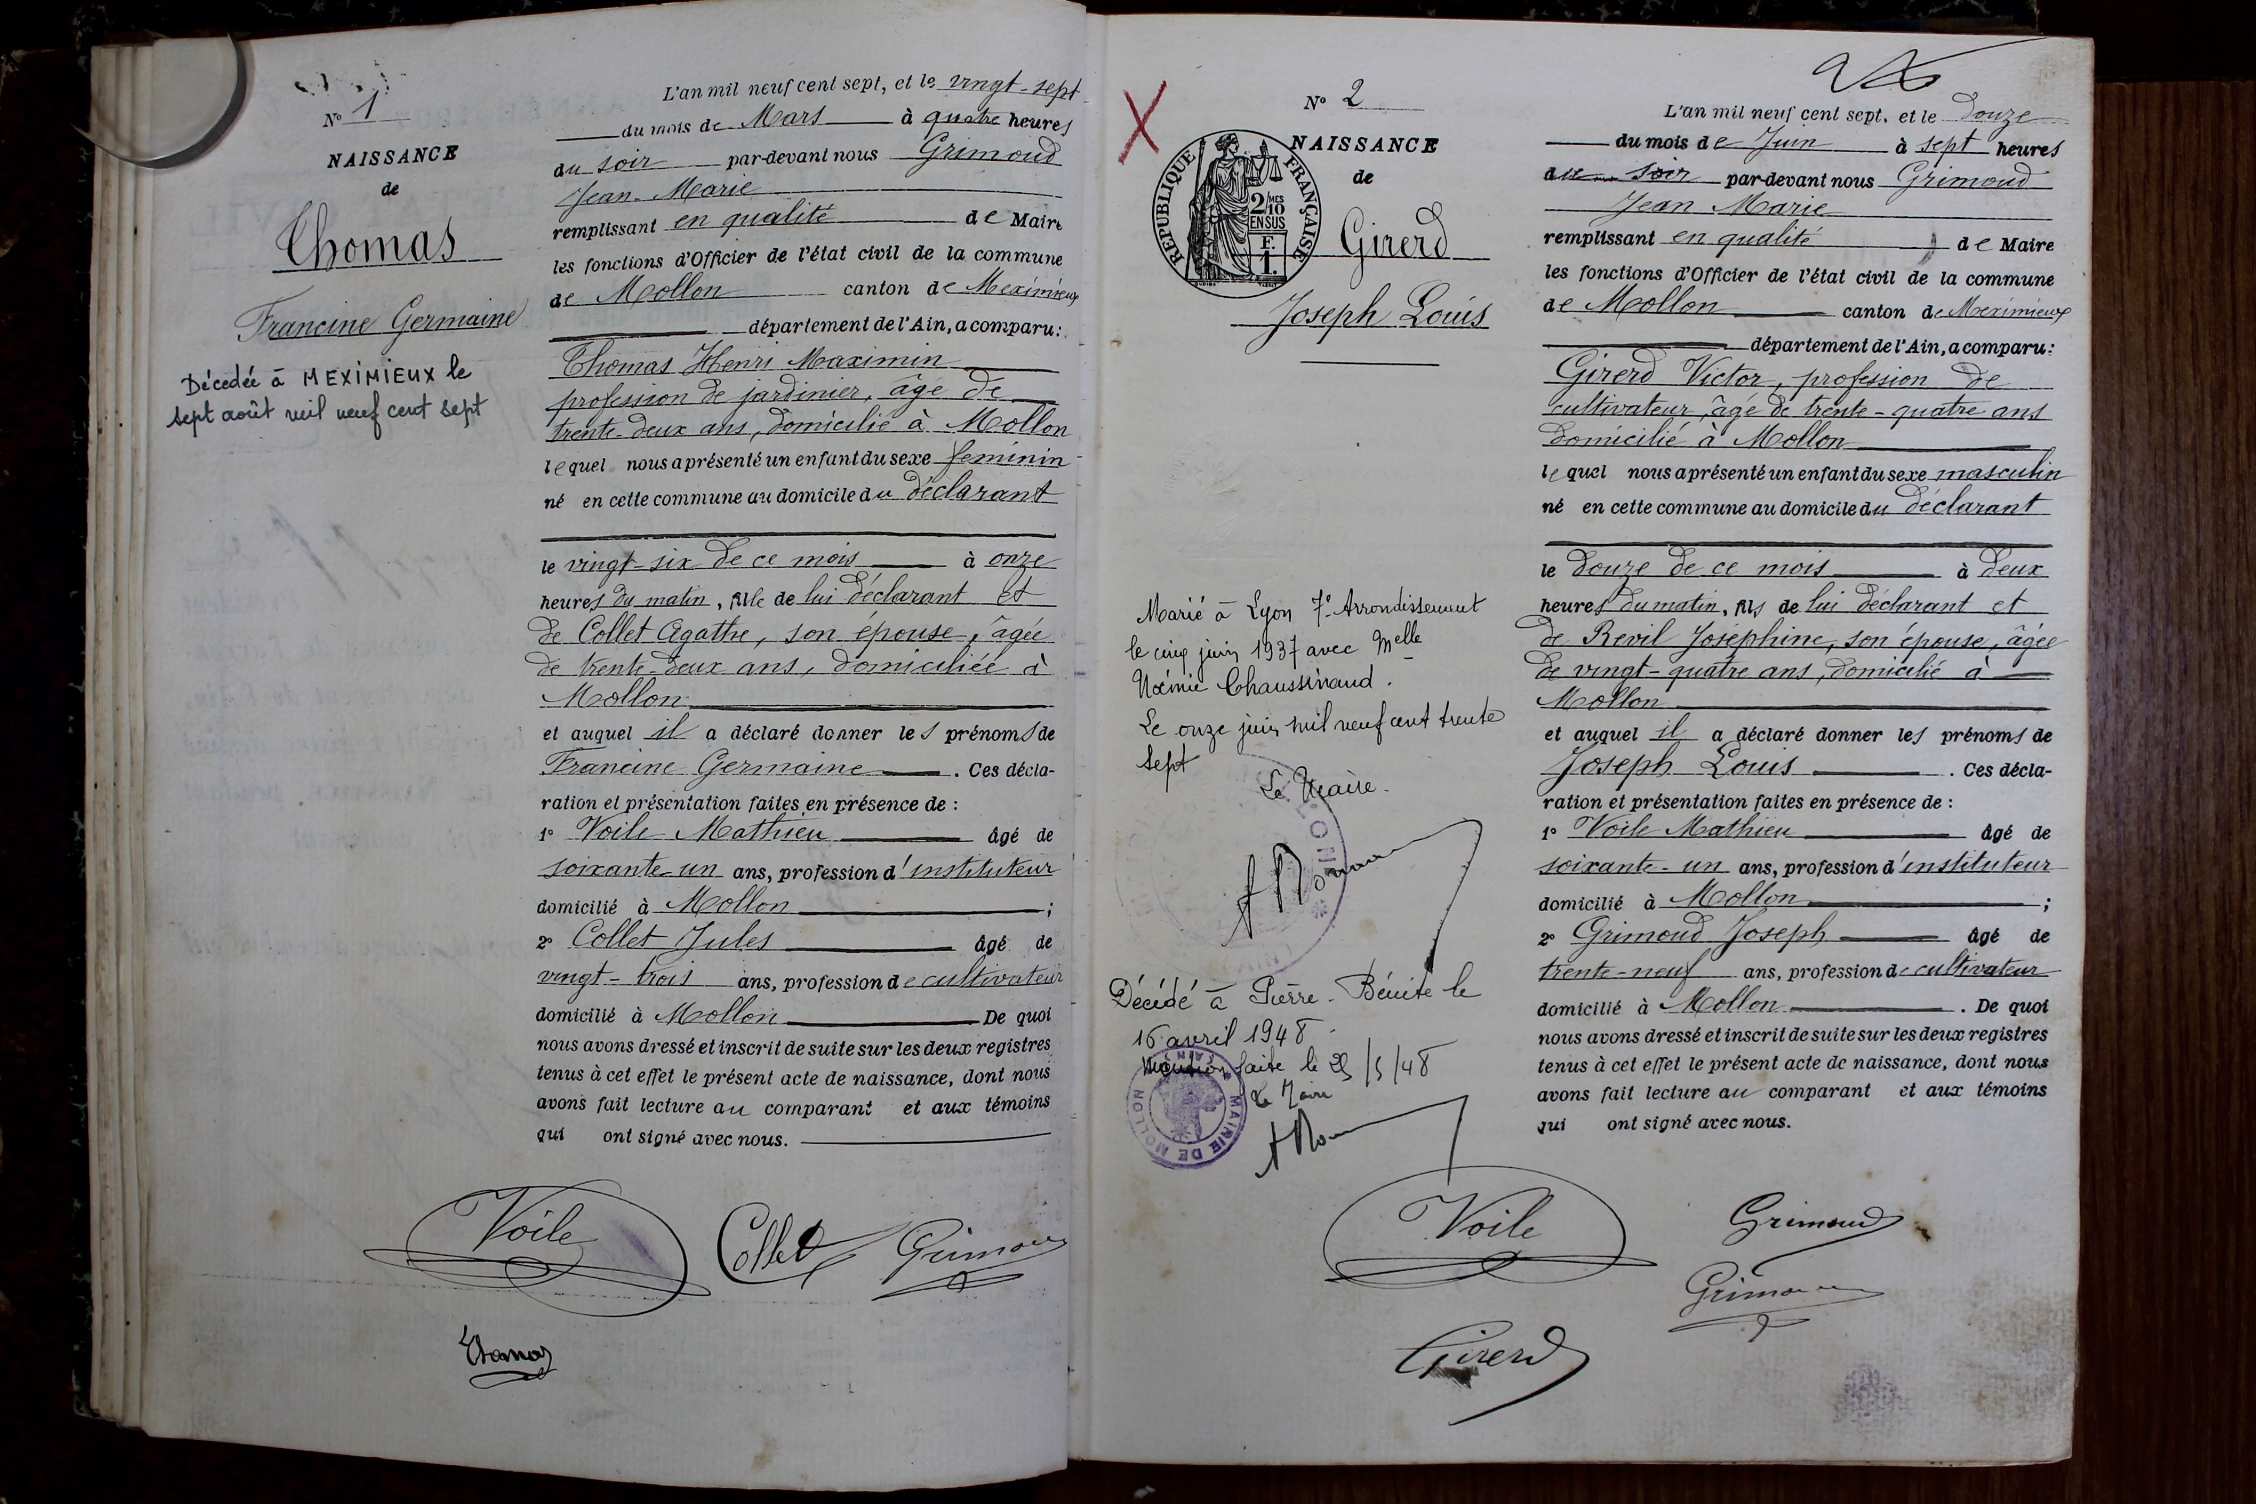 N° 1
NAISSANCE
de
Thomas
Francine Germaine
Décédée à MEXIMIEUX le
sept août mil neuf cent sept
L'an mil neuf cent sept, et le vingt-sept
du mois de Mars à quatre heures
du soir par-devant nous Grimoud
Jean-Marie
remplissant en qualité de Maire
les fonctions d'Officier de l'état civil de la commune
de Mollon canton de Meximieux
département de l'Ain, a comparu:
Thomas Henri Maximin
profession de jardinier, âgé de
trente-deux ans, domicilié à Mollon
lequel nous a présenté un enfant du sexe féminin
né en cette commune au domicile du déclarant
le vingt-six de ce mois à onze
heures du matin, fille de lui déclarant et
de Collet Agathe, son épouse, âgée
de trente-deux ans, domiciliée à
Mollon
et auquel il a déclaré donner les prénoms de
Francine Germaine. Ces décla-
ration et présentation faites en présence de :
1° Voile Mathieu âgé de
soixante-un ans, profession d'instituteur
domicilié à Mollon ;
2° Collet Jules âgé de
vingt-trois ans, profession de cultivateur
domicilié à Mollon De quoi
nous avons dressé et inscrit de suite sur les deux registres
tenus à cet effet le présent acte de naissance, dont nous
avons fait lecture au comparant et aux témoins
qui ont signé avec nous.
Voile
Collet
Grimoud
Thomas
N° 2
NAISSANCE
de
RÉPUBLIQUE FRANÇAISE
2 MES
10
EN SUS
F.
1.
Girerd
Joseph Louis
Marié à Lyon 7e Arrondissement
le cinq juin 1937 avec Melle
Noémie Chaussinaud.
Le onze juin mil neuf cent trente
sept
Le Maire.
Décédé à Pierre-Bénite le
16 avril 1948.
Mention faite le 25/5/48
Le Maire
MAIRIE DE MOLLON
L'an mil neuf cent sept, et le douze
du mois de Juin à sept heures
du soir par-devant nous Grimoud
Jean Marie
remplissant en qualité de Maire
les fonctions d'Officier de l'état civil de la commune
de Mollon canton de Meximieux
département de l'Ain, a comparu:
Girerd Victor, profession de
cultivateur, âgé de trente-quatre ans
domicilié à Mollon
lequel nous a présenté un enfant du sexe masculin
né en cette commune au domicile du déclarant
le douze de ce mois à deux
heures du matin, fils de lui déclarant et
de Revil Joséphine, son épouse, âgée
de vingt-quatre ans, domicilié à
Mollon
et auquel il a déclaré donner les prénoms de
Joseph Louis. Ces décla-
ration et présentation faites en présence de :
1° Voile Mathieu âgé de
soixante-un ans, profession d'instituteur
domicilié à Mollon ;
2° Grimoud Joseph âgé de
trente-neuf ans, profession de cultivateur
domicilié à Mollon. De quoi
nous avons dressé et inscrit de suite sur les deux registres
tenus à cet effet le présent acte de naissance, dont nous
avons fait lecture au comparant et aux témoins
qui ont signé avec nous.
Voile
Grimoud
Grimoud
Girerd